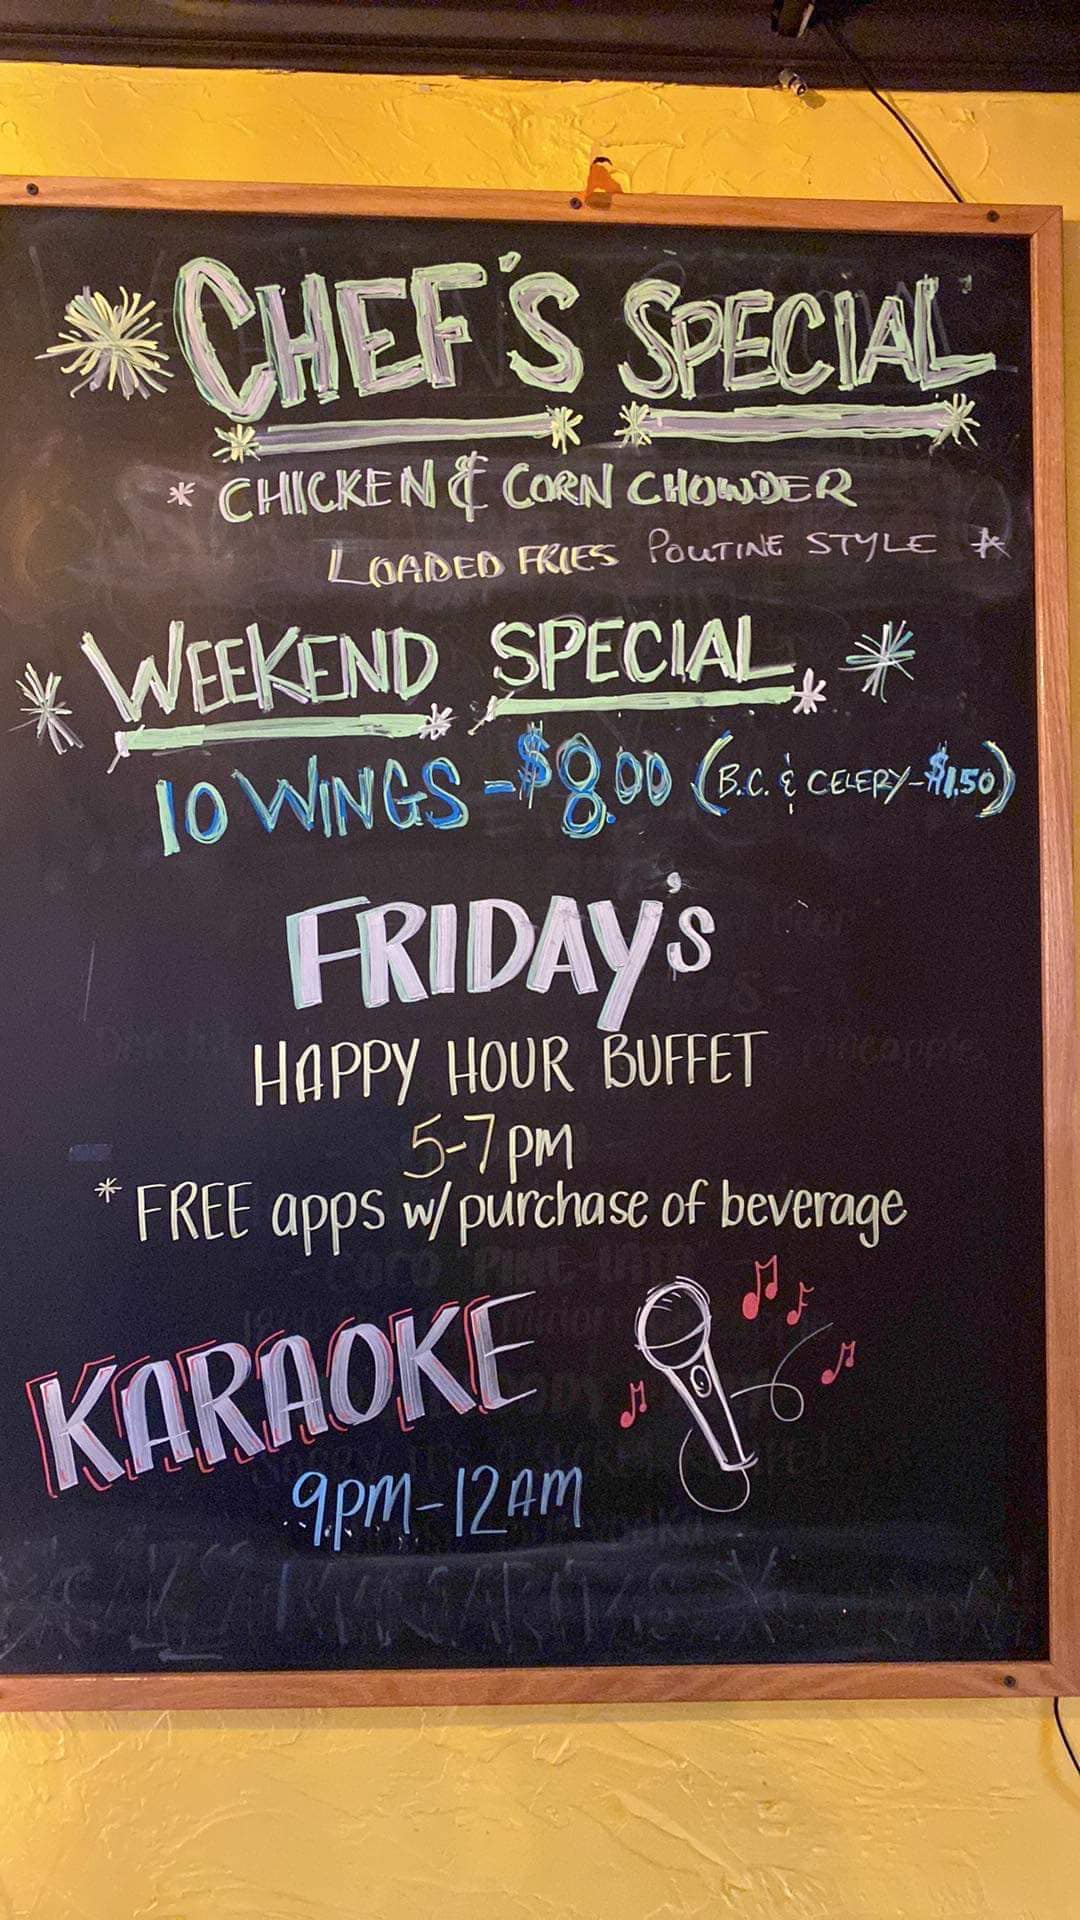 CHEF'S SPECIAL
* CHICKEN & CORN CHOWDER
LOADED FRIES POUTINE STYLE *
WEEKEND SPECIAL
10 WINGS - $8.00 (B.C. & CELERY - $1.50)
FRIDAY's
HAPPY HOUR BUFFET
5-7pm
* FREE apps w/ purchase of beverage
KARAOKE
9pm-12AM